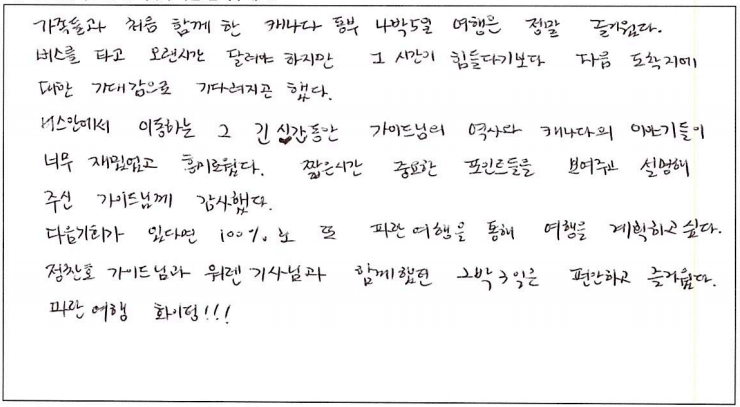 가족들과 처음 함께 한 캐나다 동부 4박5일 여행은 정말 즐거웠다.
버스를 타고 오랜시간 달려야 하지만 그 시간이 힘들다기보다 다음 도착지에
대한 기대감으로 기다려지곤 했다.
버스안에서 이동하는 그 긴 시간동안 가이드님의 역사와 캐나다의 이야기들이
너무 재밌었고 흥미로웠다. 짧은시간 중요한 포인트들을 보여주고 설명해
주신 가이드님께 감사했다.
다음기회가 있다면 100% 로 또 파란여행을 통해 여행을 계획하고 싶다.
정찬호 가이드님과 워렌 기사님과 함께했던 2박 3일은 편안하고 즐거웠다.
파란여행 화이팅!!!